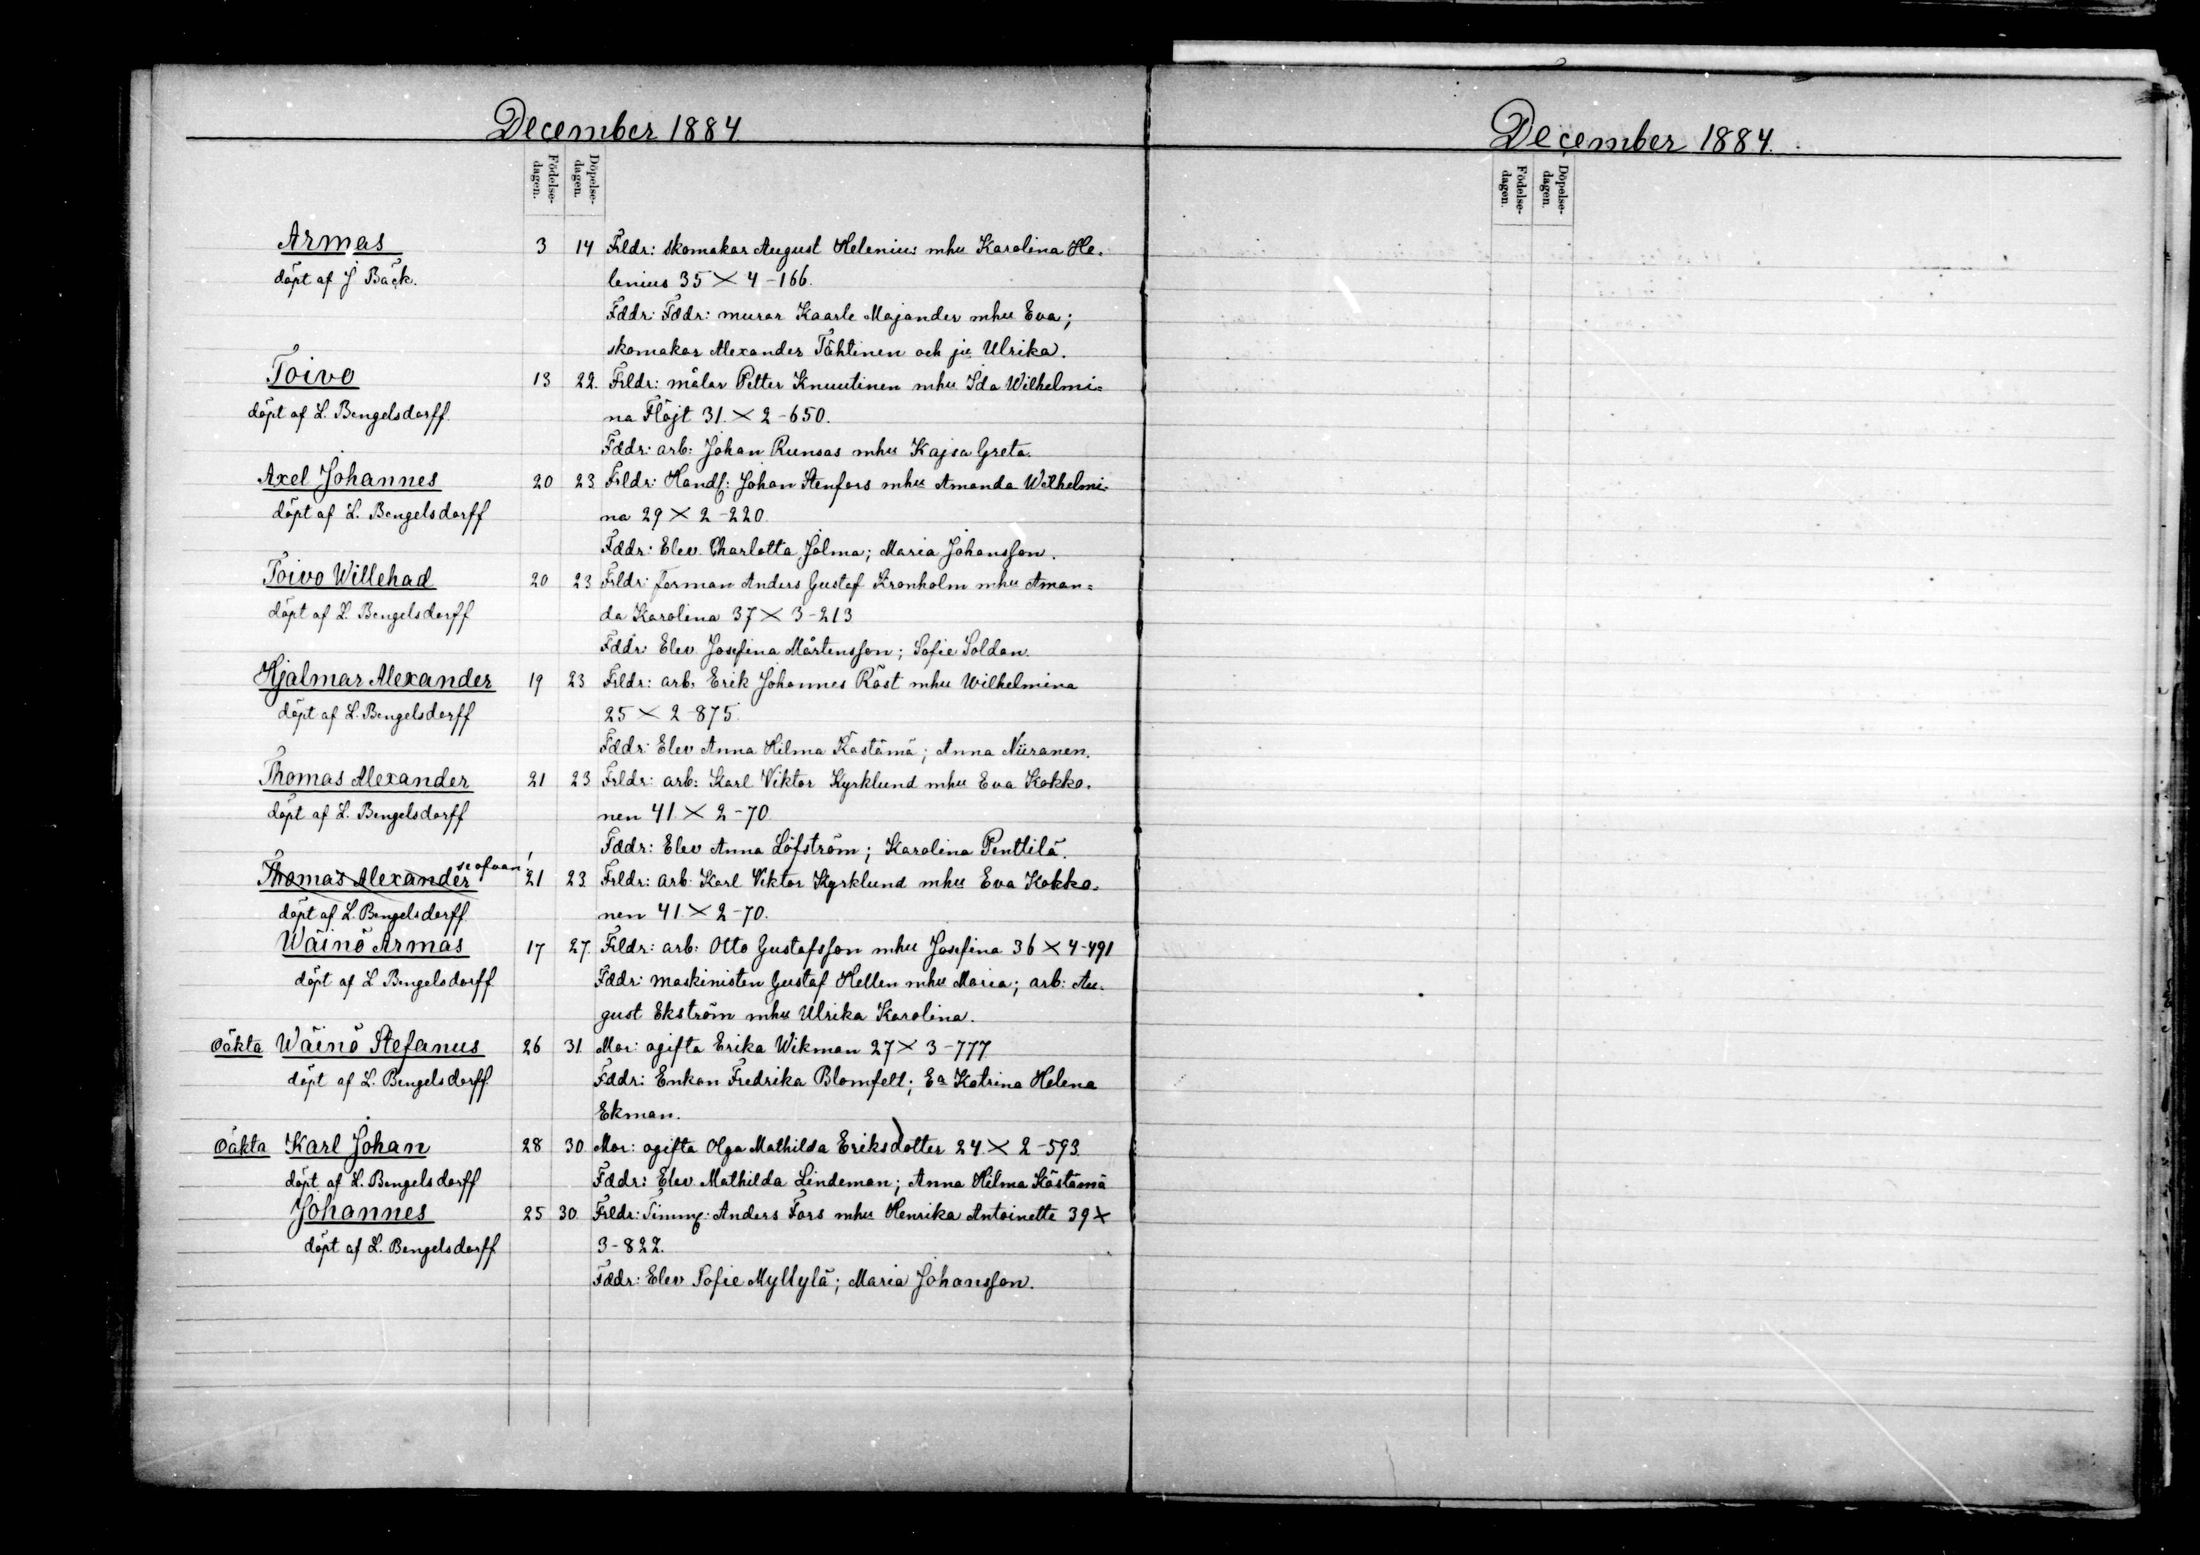 December 1884
Födelse-
dagen.
Döpelse-
dagen.
Armas 3 14 Frldr: skomakar August Helenius mhu Karolina He-
döpt af J Bäck. lenius 35 × 4-166.
Fddr: Fddr: murar Kaarle Majander mhu Eva;
skomakar Alexander Tähtinen och jn Ulrika.
Toivo 13 22. Frldr: målar Petter Knuutinen mhu Ida Wilhelmi=
döpt af L. Bengelsdorff. na Flöjt 31. × 2-650.
Fddr: arb: Johan Runsas mhu Kajsa Greta.
Axel Johannes 20 23 Frldr: Handl: Johan Stenfors mhu Amanda Wilhelmi-
döpt af L. Bengelsdorff na 29 × 2-220.
Fddr: Elev. Charlotta Jolma; Maria Johansson.
Toivo Willehad 20 23 Frldr: forman Anders Gustaf Kronholm mhu Aman=
döpt af L. Bengelsdorff da Karolina 37 × 3-213
Fddr Elev. Josefina Mårtensson; Sofie Soldan.
Hjalmar Alexander 19 23 Frldr: arb: Erik Johannes Räst mhu Wilhelmina
döpt af L. Bengelsdorff 25 × 2-875.
Fddr: Elev Anna Hilma Kästämä; Anna Niiranen.
Thomas Alexander 21 23 Frldr: arb: Karl Viktor Kyrklund mhu Eva Kokko-
döpt af L. Bengelsdorff nen 41. × 2-70.
Fddr: Elev Anna Löfström; Karolina Penttilä.
Thomas Alexander se ofvan! 21 23 Frldr: arb: Karl Viktor Kyrklund mhu Eva Kokko-
döpt af L. Bengelsdorff nen 41. × 2-70.
Wäinö Armas 17 27. Frldr: arb: Otto Gustafsson mhu Josefina 36 × 4-491
döpt af L Bengelsdorff Fddr: maskinisten Gustaf Hellen mhu Maria; arb: Au-
gust Ekström mhu Ulrika Karolina.
oäkta Wäinö Stefanus 26 31 Mor: ogifta Erika Wikman 27 × 3-777
döpt af L. Bengelsdorff Fddr: Enkan Fredrika Blomfelt; Ea Katrina Helena
Ekman.
oäkta Karl Johan 28 30. Mor: ogifta Olga Mathilda Eriksdotter 24. × 2-593.
döpt af L. Bengelsdorff Fddr: Elev Mathilda Lindeman; Anna Hilma Kästämä
Johannes 25 30. Frldr: Timmg: Anders Fors mhu Henrika Antoinette 39 ×
döpt af L. Bengelsdorff 3-822.
Fddr: Elev Sofie Myllylä; Maria Johansson.
December 1884.
Födelse-
dagen.
Döpelse-
dagen.